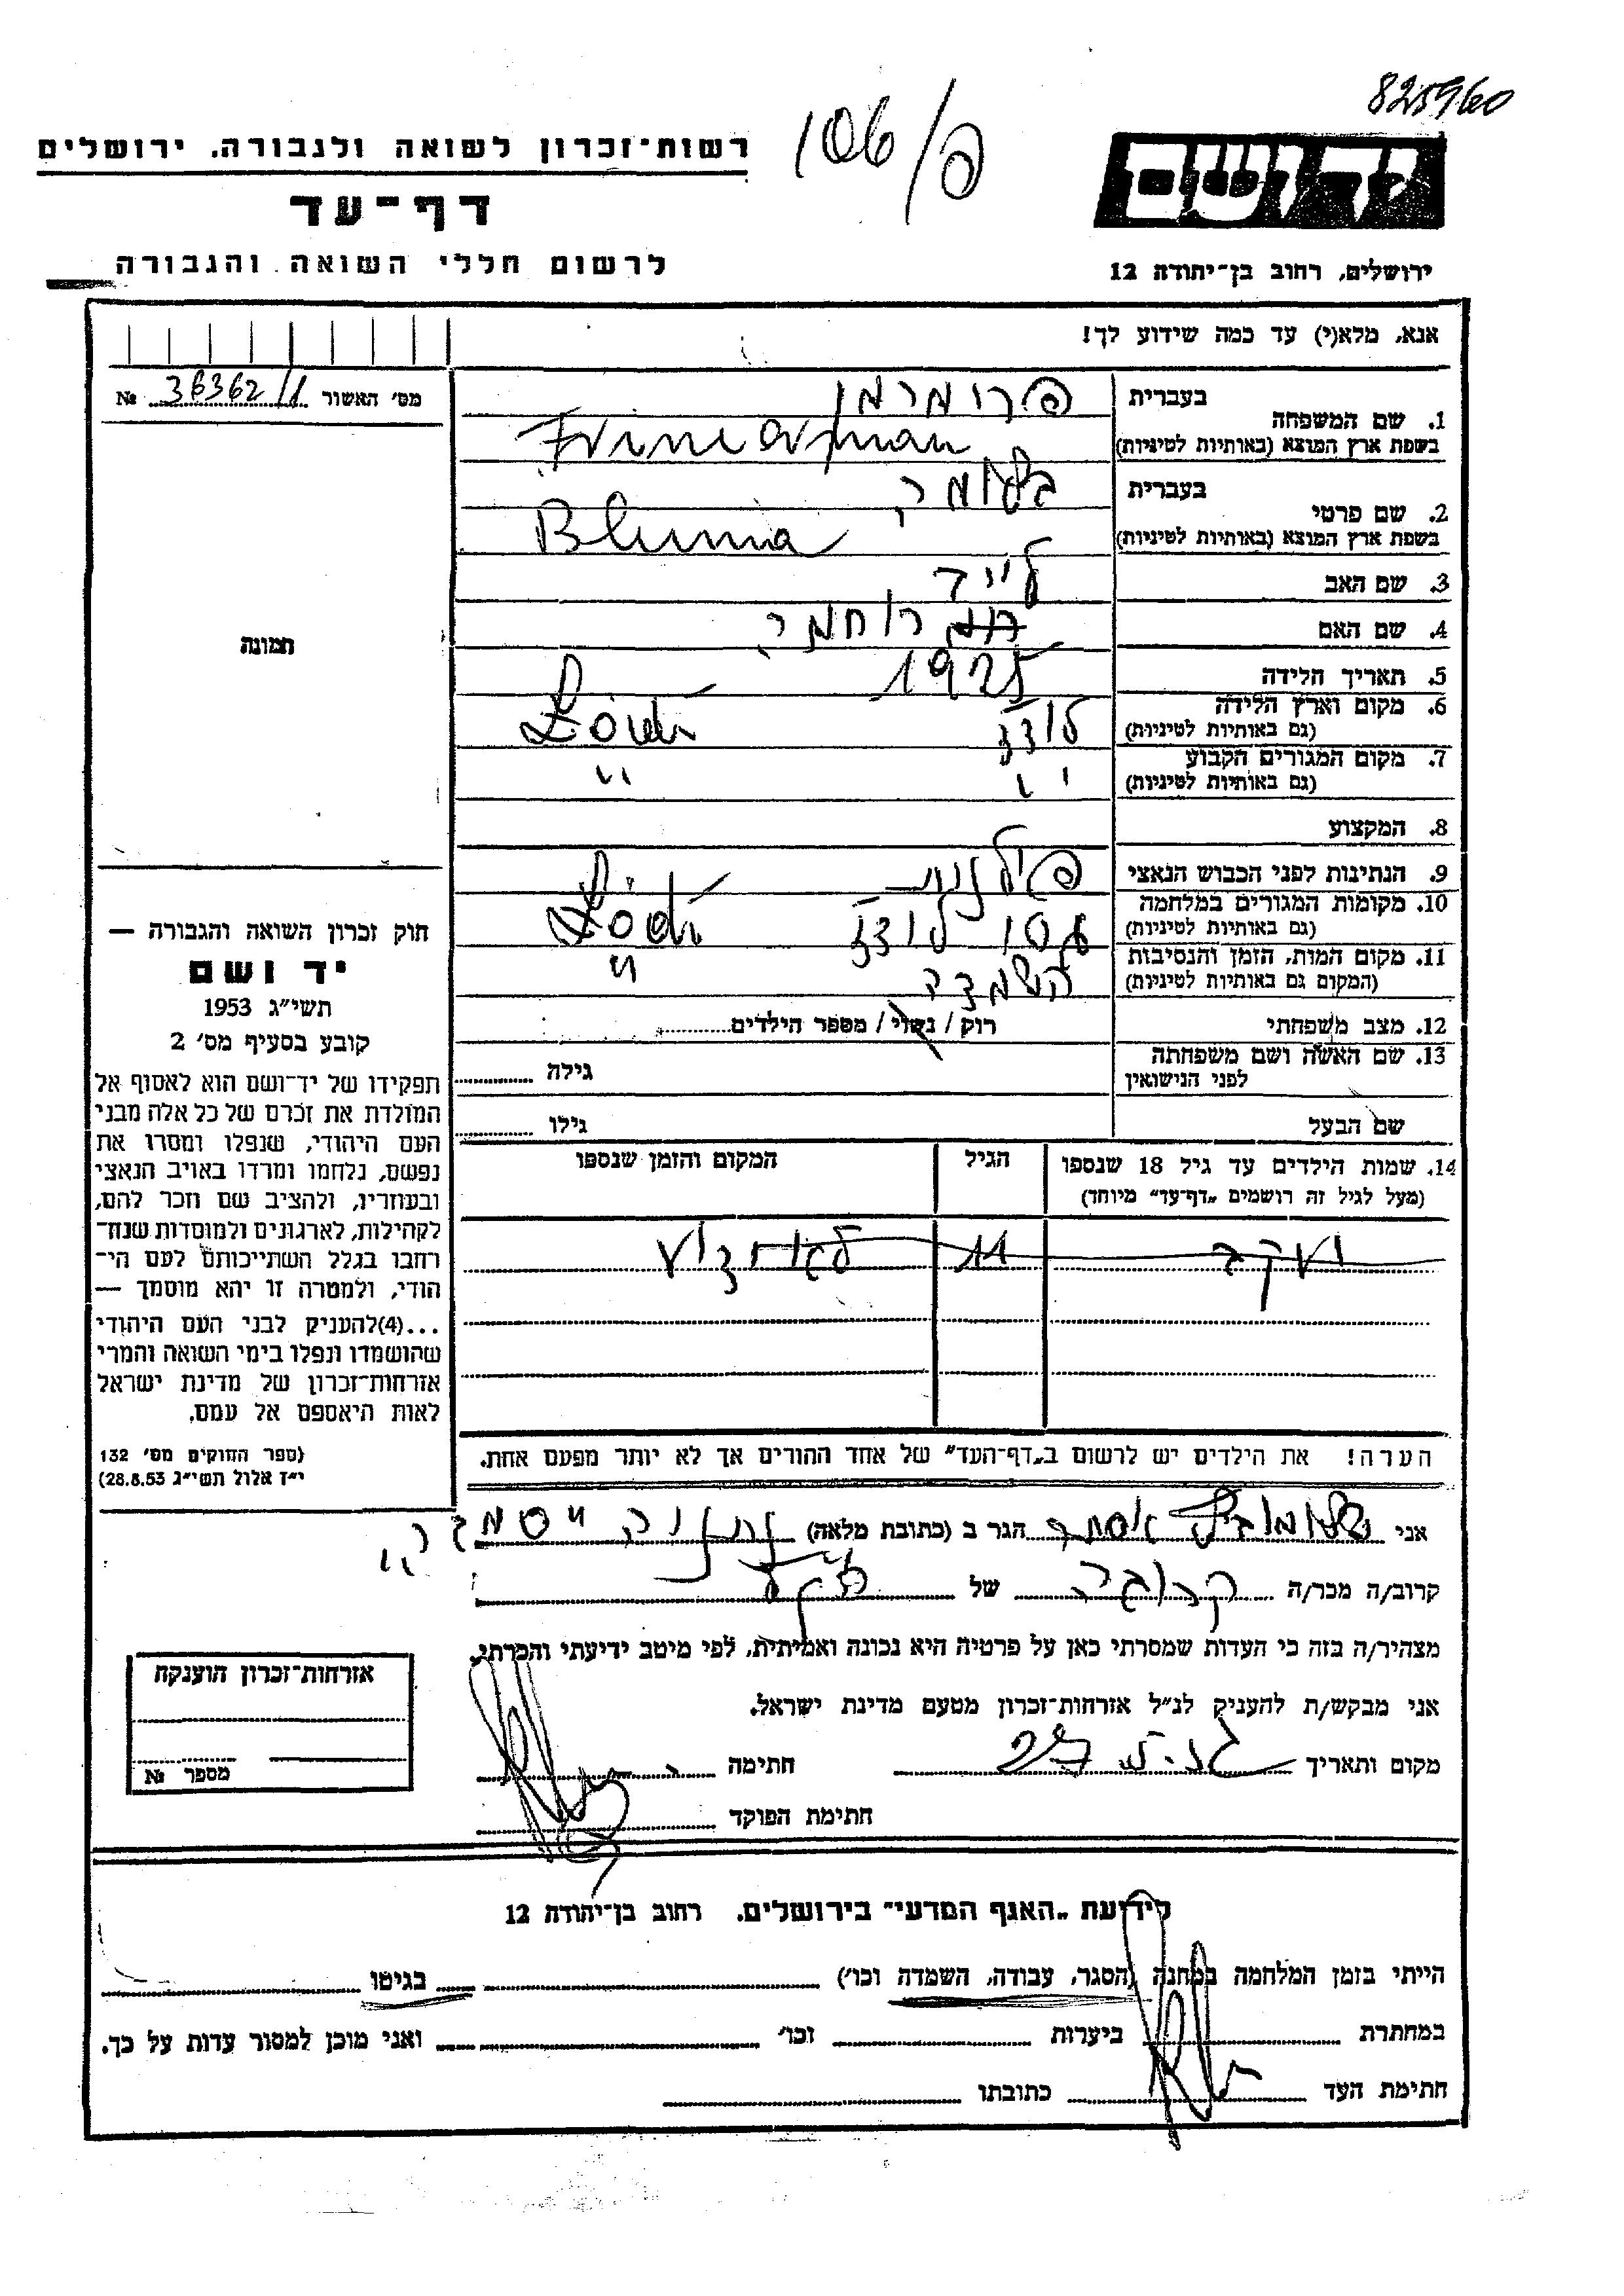 825960
106/פ
יד ושם
ירושלים, רחוב בן־יהודה 12
רשות־זכרון לשואה ולגבורה, ירושלים
דף־עד
לרשום חללי השואה והגבורה
אנא, מלא(י) עד כמה שידוע לך!
מס' האשור 36362/1 №
1. שם המשפחה
בעברית פרומרמן
בשפת ארץ המוצא (באותיות לטיניות)
2. שם פרטי
בעברית בלומה
בשפת ארץ המוצא (באותיות לטיניות) Bluma
3. שם האב
4. שם האם רוחמה
5. תאריך הלידה 1925
6. מקום וארץ הלידה לודז
(גם באותיות לטיניות) Łódź
7. מקום המגורים הקבוע " "
(גם באותיות לטיניות)
8. המקצוע
9. הנתינות לפני הכבוש הנאצי פולנית
10. מקומות המגורים במלחמה לודז Łódź
(גם באותיות לטיניות)
11. מקום המות, הזמן והנסיבות השמדה "
(המקום גם באותיות לטיניות)
12. מצב משפחתי רוק / נשוי / מספר הילדים
13. שם האשה ושם משפחתה גילה
לפני הנישואין
שם הבעל גילו
14. שמות הילדים עד גיל 18 שנספו הגיל המקום והזמן שנספו
(מעל לגיל זה רושמים „דף־עד" מיוחד)
יעקב 11 לאודזיץ
הערה! את הילדים יש לרשום ב„דף־העד" של אחד ההורים אך לא יותר מפעם אחת.
תמונה
חוק זכרון השואה והגבורה —
יד ושם
תשי"ג 1953
קובע בסעיף מס' 2
תפקידו של יד־ושם הוא לאסוף אל
המולדת את זכרם של כל אלה מבני
העם היהודי, שנפלו ומסרו את
נפשם, נלחמו ומרדו באויב הנאצי
ובעוזריו, ולהציב שם וזכר להם,
לקהילות, לארגונים ולמוסדות שנח־
רחבו בגלל השתייכותם לעם הי־
הודי, ולמטרה זו יהא מוסמך —
...(4)להעניק לבני העם היהודי
שהושמדו ונפלו בימי השואה והמרי
אזרחות־זכרון של מדינת ישראל
לאות היאספם אל עמם.
(ספר החוקים מס' 132
י"ז אלול תשי"ג 28.8.53)
אני אסתר הגר ב (כתובת מלאה) נתניה
קרוב/ה מכר/ה קרובה של
מצהיר/ה בזה כי העדות שמסרתי כאן על פרטיה היא נכונה ואמיתית, לפי מיטב ידיעתי והכרתי.
אני מבקש/ת להעניק לנ"ל אזרחות־זכרון מטעם מדינת ישראל.
מקום ותאריך חתימה
חתימת הפוקד
אזרחות־זכרון הוענקה
מספר №
לידיעת „האגף המדעי" בירושלים. רחוב בן־יהודה 12
הייתי בזמן המלחמה במחנה (הסגר, עבודה, השמדה וכו') בגיטו
במחתרת ביערות וכו' ואני מוכן למסור עדות על כך.
חתימת העד כתובתו